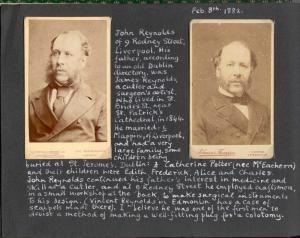 Feb. 8th. 1882.
John Reynolds
of 9 Rodney Street,
Liverpool. His
father, according
to an old Dublin
directory, was
James Reynolds,
a cutler and
surgeon's artist,
who lived in St.
Brides St. near
St. Patrick's
Cathedral, in 1844.
He married:
Mapping, of Liverpool,
and had a very
large family, some
children being
buried at St. Jerome's, Dublin: & Catherine Potter (née McEachern)
and their children were Edith, Frederick, Alice and Charles.
John Reynolds continued his father's interest in medicine and
skill as a cutler, and at 9 Rodney Street he employed craftsmen,
in a small workshop at the back to make surgical instruments
to his design. (Vincent Reynolds in Edmonton has a case of
scalpels made there). I believe he was one of the first men to
devise a method of making a well-fitting plug for a colotomy.